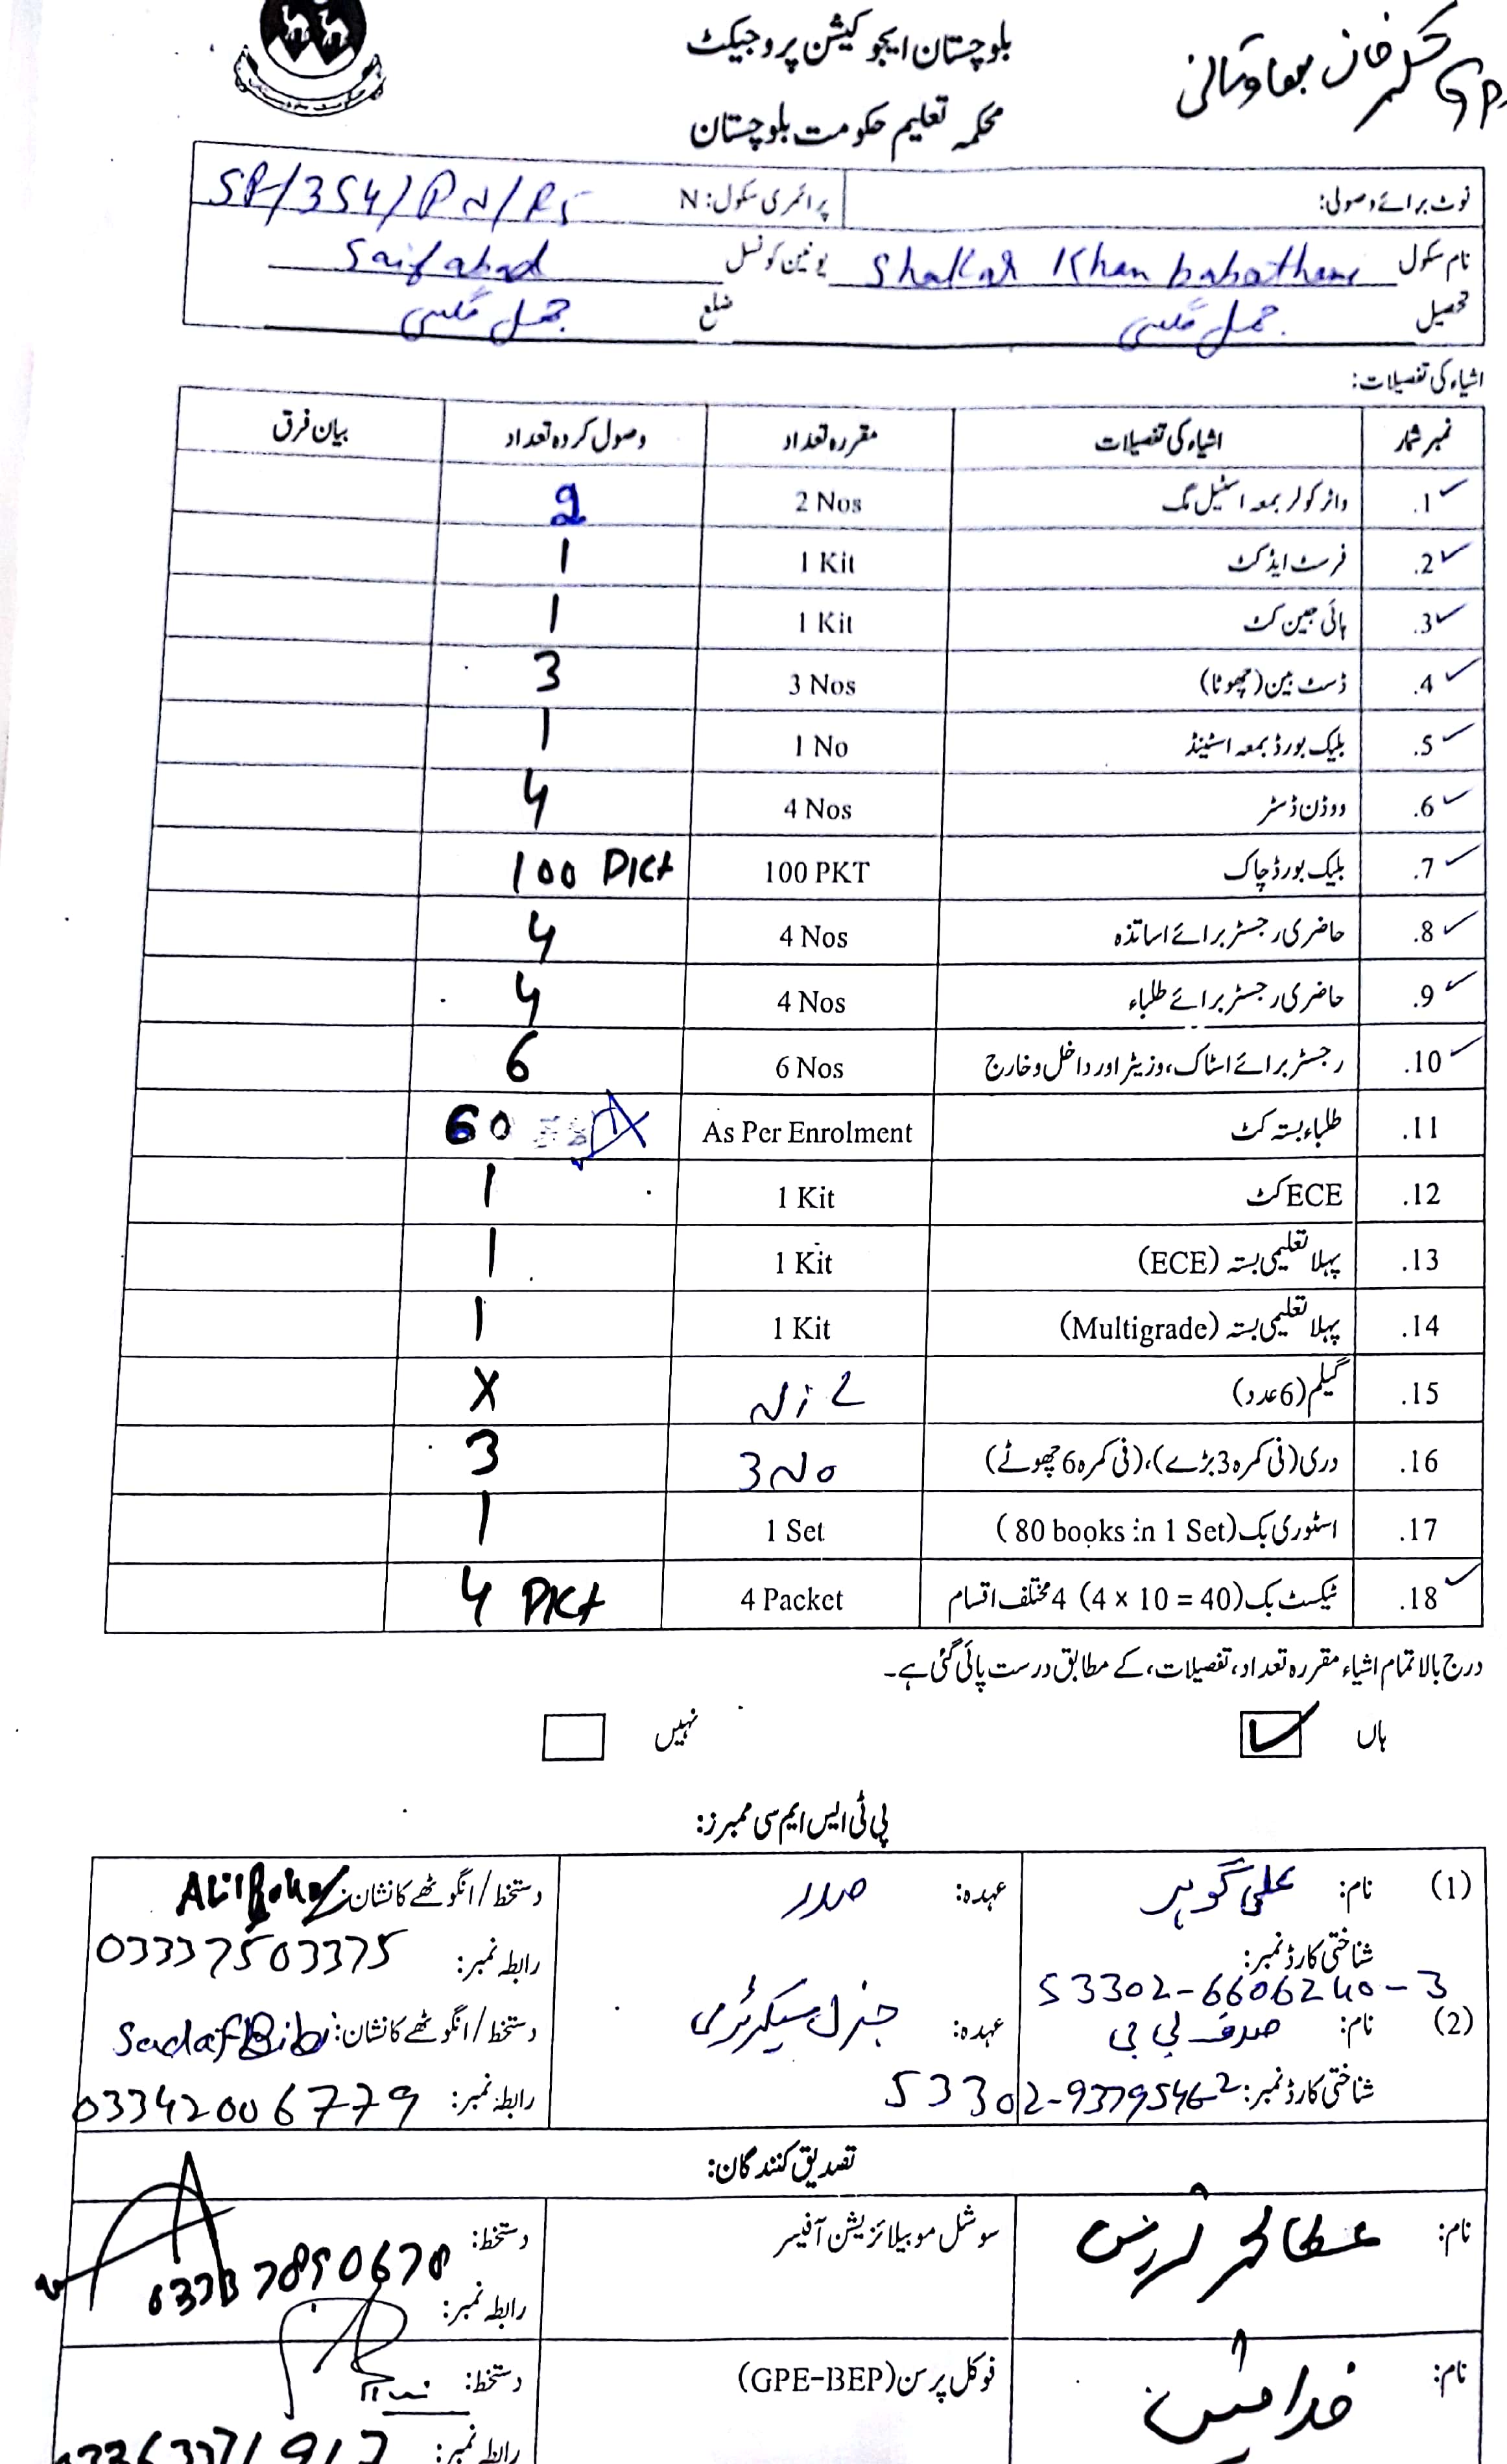 GPS شکر خان بھاوتانی
بلوچستان ایجوکیشن پروجیکٹ
محکمہ تعلیم حکومت بلوچستان
نوٹ برائے وصولی: پرائمری سکول: N SP/354/PN/RS
نام سکول Shakar Khan babathani یونین کونسل Saifabad
تحصیل جھل مگسی ضلع جھل مگسی
اشیاء کی تفصیلات:
نمبر شمار اشیاء کی تفصیلات مقررہ تعداد وصول کردہ تعداد بیان فرق
1. واٹر کولر بمعہ اسٹیل مگ 2 Nos 2
2. فرسٹ ایڈ کٹ 1 Kit 1
3. ہائی جین کٹ 1 Kit 1
4. ڈسٹ بین (چھوٹا) 3 Nos 3
5. بلیک بورڈ بمعہ اسٹینڈ 1 No 1
6. ووڈن ڈسٹر 4 Nos 4
7. بلیک بورڈ چاک 100 PKT 100 PKt
8. حاضری رجسٹر برائے اساتذہ 4 Nos 4
9. حاضری رجسٹر برائے طلباء 4 Nos 4
10. رجسٹر برائے اسٹاک، وزیٹر اور داخل و خارج 6 Nos 6
11. طلباء بستہ کٹ As Per Enrolment 60
12. ECE کٹ 1 Kit 1
13. پہلا تعلیمی بستہ (ECE) 1 Kit 1
14. پہلا تعلیمی بستہ (Multigrade) 1 Kit 1
15. گیلم (6 عدد) Nil X
16. دری (فی کمرہ 3 بڑے)، (فی کمرہ 6 چھوٹے) 3 No 3
17. اسٹوری بک (80 books in 1 Set) 1 Set 1
18. ٹیکسٹ بک (4 x 10 = 40) 4 مختلف اقسام 4 Packet 4 PKt
درج بالا تمام اشیاء مقررہ تعداد، تفصیلات، کے مطابق درست پائی گئی ہے۔
ہاں نہیں
پی ٹی ایس ایم سی ممبرز:
(1) نام: علی گوہر عہدہ: صدر دستخط/انگوٹھے کا نشان:
شناختی کارڈ نمبر: 53302-6606240-3 رابطہ نمبر: 03337503375
(2) نام: صدف بی بی عہدہ: جنرل سیکرٹری دستخط/انگوٹھے کا نشان: Sadaf Bibi
شناختی کارڈ نمبر: 53302-9379546-2 رابطہ نمبر: 03342006779
تصدیق کنندگان:
نام: سوشل موبیلائزیشن آفیسر دستخط:
رابطہ نمبر: 03337890678
نام: فوکل پرسن (GPE-BEP) دستخط:
رابطہ نمبر: